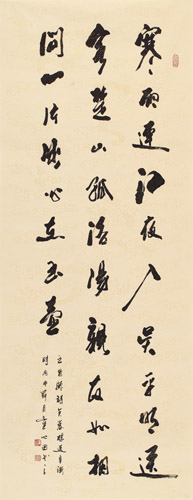 寒雨連江夜入吳平明送
客楚山孤洛陽親友如相
問一片冰心在玉壺
王昌齡詩芙蓉樓送辛漸